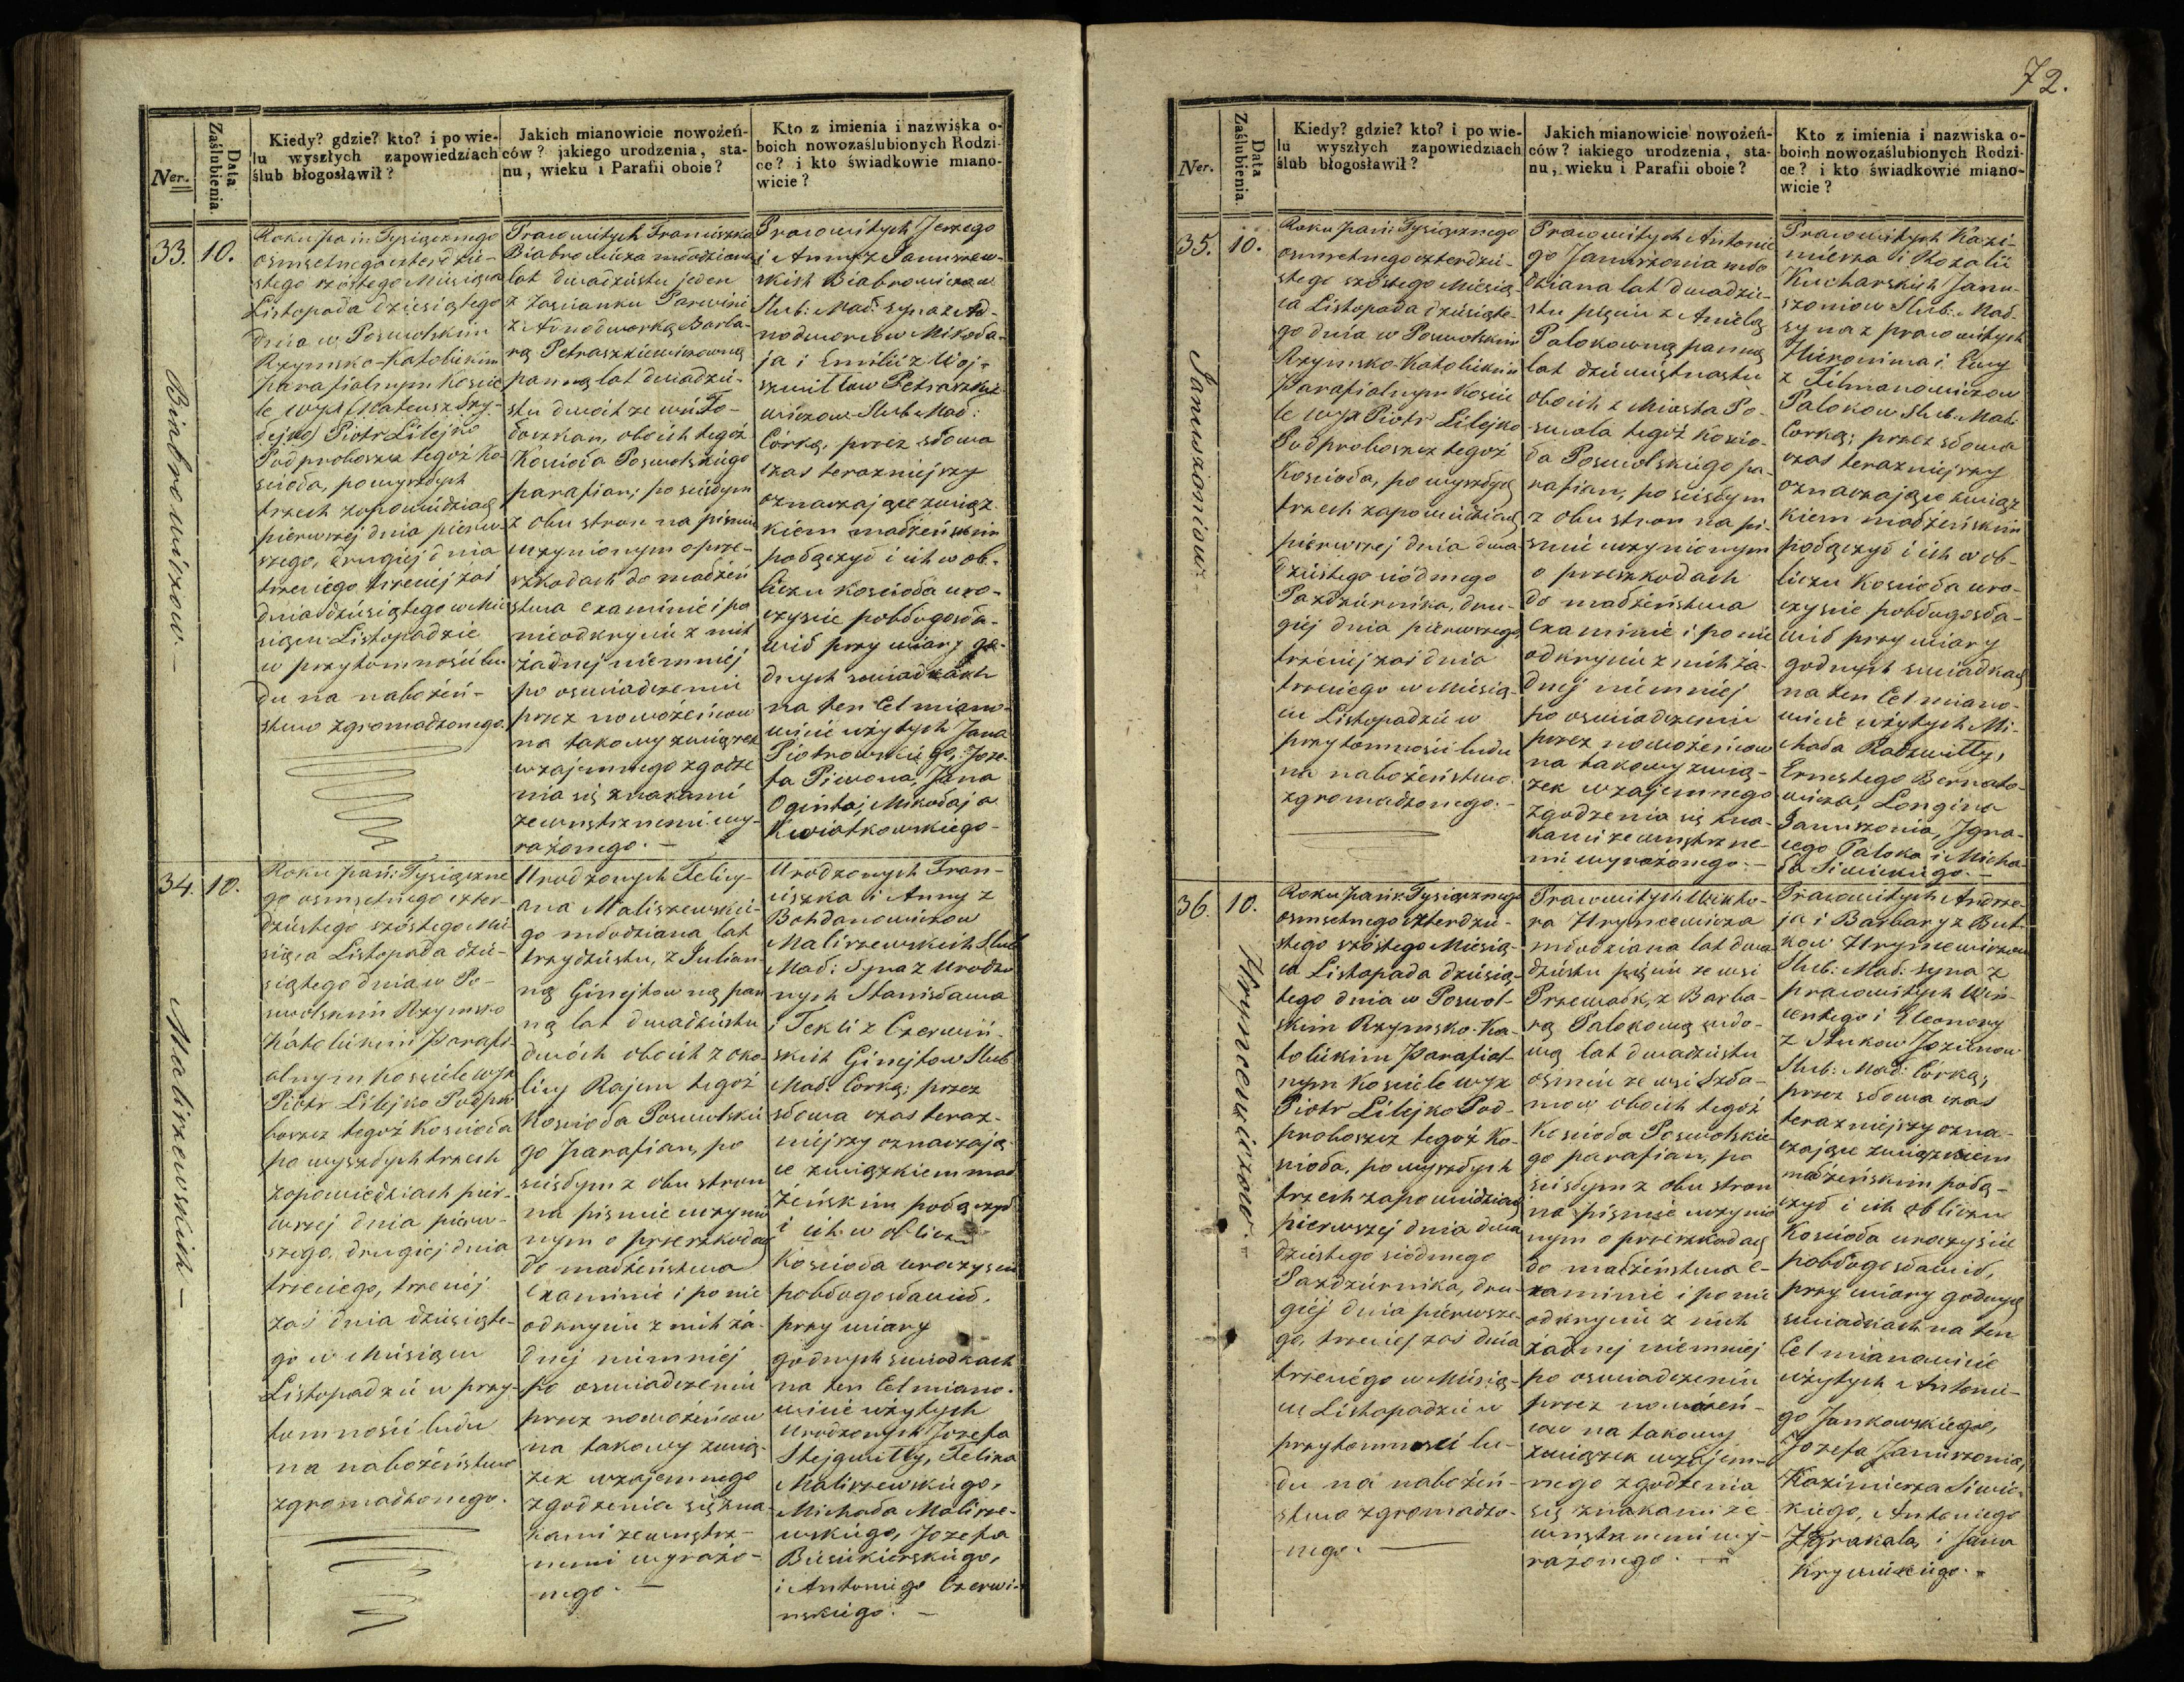 72.
Ner.
Data
Zaślubienia.
Kiedy? gdzie? kto? i po wie-
lu wyszłych zapowiedziach
ślub błogosławił?
Jakich mianowicie nowożeń-
ców? jakiego urodzenia, sta-
nu, wieku i Parafii oboie?
Kto z imienia i nazwiska o-
boich nowozaślubionych Rodzi-
ce? i kto świadkowie miano-
wicie?
33.
10.
Białrowiczow.—
Roku pań: Tysiącznego
osmsetnego czterdzie-
stego szóstego Miesiąca
Listopada dziesiątego
dnia w Poswolskim
Rzymsko-Katolickim
Parafialnym Koscie
le wyx (Mateusz
) Piotr Lilejko
Podproboszcz tegoż Ko-
scioła, po wyszłych
trzech zapowiedziach
pierwszej dnia pierw-
szego, drugiej dnia
trzeciego trzeciej zaś
dnia dziesiątego w Mie
siącu Listopadzie
w przytomności lu-
du na nabożeń-
stwo zgromadzonego.
Pracowitych Franciszka
Białrowicza młodziana
lat dwadziestu jeden
z zascianku Parwini
z Jednodworką Barba-
rą Petraszkiewiczowną
panną lat dwadzie-
stu dwóch ze wsi To-
łoczkan, oboich tegoż
Kościoła Poswolskiego
parafian; po scisłym
z obu stron na pismie
uczynionym o prze-
szkodach do małżeń
stwa examinie i po
nieodkryciu z nich
żadnej niemniej
po oswiadczeniu
przez nowożeńcow
na takowy związek
wzajemnego zgodze
nia się znakami
zewnętrznemi wy-
rażonego.—
Pracowitych Jerzego
i Anny z Januszew-
skich Białrowiczow
Slub: Mał: syna z Jed-
nodworcow Mikoła-
ja i Emilii z Woj-
szwiłłow Petraszkie
wiczow Slub Mał:
Córką, przez słowa
czas teraźniejszy
oznaczające związ
kiem małżeńskim
połączył i ich w ob-
liczu Koscioła uro-
czyscie pobłogosła-
wił przy wiary go-
dnych swiadkach
na ten Cel miano-
wicie użytych Jana
Piotrowskiego, Joze-
fa Piwona, Jana
Oginta i Mikołaja
Kwiatkowskiego-
34.
10.
Maliszewskich.—
Roku pań: Tysiączne
go osmsetnego czter-
dziestego szóstego Mie
siąca Listopada dzie-
siątego dnia w Po-
swolskim Rzymsko
Katolickim Parafi-
alnym koscicle wyx
Piotr Lilejko Podpro
boszcz tegoż Koscioła
po wyszłych trzech
zapowiedziach pier-
wszej dnia pierw-
szego, drugiej dnia
trzeciego, trzeciej
zaś dnia dziesiąte-
go w Miesiącu
Listopadzie w przy-
tomności ludu
na nabożeństwo
zgromadzonego.
Urodzonych Felicy-
ana Maliszewskie-
go młodziana lat
trzydziestu, z Julian-
ną Ginejtowną pan
ną lat dwadziestu
dwóch oboich z oko-
licy Rajun tegoż
Koscioła Poswolskie
go Parafian, po
scisłym z obu stron
na pismie uczynio
nym o przeszkodach
do małżeństwa
Examinie i po nie
odkryciu z nich ża-
dnej niemniej
po oswiadczeniu
przez nowożeńcow
na takowy zwią-
zek wzajemnego
zgodzenia się zna-
kami zewnętrz-
nemi wyrażo-
nego.—
Urodzonych Fran-
ciszka i Anny z
Bohdanowiczow
Maliszewskich Slub
Mał: Syna z Urodzo
nych Stanisława
i Tekli z Czerwiń-
skich Ginejtow Slub
Mał: Corką; przez
słowa czas teraz-
niejszy oznaczają-
ce związkiem mał
żeńskim połączył
i ich w obliczu
Koscioła uroczyscie
pobłogosławił,
przy wiary
godnych swiadkach
na ten Cel miano-
wicie użytych
Urodzonych Jozefa
Stejgwiłły, Felixa
Maliszewskiego,
Michała Malisze-
wskiego, Jozefa
Biesiekierskiego,
i Antoniego Czerwi-
nskiego.—
Ner.
Data
Zaślubienia.
Kiedy? gdzie? kto? i po wie-
lu wyszłych zapowiedziach
ślub błogosławił?
Jakich mianowicie nowożeń-
ców? iakiego urodzenia, sta-
nu, wieku i Parafii oboie?
Kto z imienia i nazwiska o-
boich nowozaślubionych Rodzi-
ce? i kto świadkowie miano-
wicie?
35.
10.
Januszoniow.—
Roku pań: Tysiącznego
osmsetnego czterdzie-
stego szóstego Miesią-
ca Listopada dziesiąte-
go dnia w Poswolskim
Rzymsko-Katolickim
Parafialnym Koscie
le wyx Piotr Lilejko
Podproboszcz tegoż
Koscioła, po wyszłych
trzech zapowiedziach
pierwszej dnia dwa-
dziestego siódmego
Pazdziernika, dru-
giej dnia pierwszego,
trzeciej zaś dnia
trzeciego w Miesią-
cu Listopadzie w
przytomnosci ludu
na nabożeństwo
zgromadzonego.—
Pracowitych Antonie
go Januszonia mło
dziana lat dwadzie-
stu pięciu z Anielą
Palokowną panną
lat dziewiętnastu
oboich z Miasta Po-
swola tegoż Koscio-
ła Poswolskiego pa-
rafian, po scisłym
z obu stron na pi-
smie uczynionym
o przeszkodach
do małżeństwa
Examinie i po nie
odkryciu z nich ża-
dnej niemniej
po oswiadczeniu
przez nowożeńcow
na takowy zwią-
zek wzajemnego
zgodzenia się zna-
kami zewnętrzne-
mi wyrażonego.—
Pracowitych Kazi-
mierza i Rozalii
Kucharskich Janu-
szoniow Slub: Mał:
syna z pracowitych
Hieronima i Ewy
z Tilmanowiczow
Palokow Slub: Mał:
Corką; przez słowa
czas teraźniejszy
oznaczające związ
kiem małżeńskim
połączył i ich w ob-
liczu Koscioła uro-
czyscie pobłogosła-
wił przy wiary
godnych swiadkach
na ten Cel miano-
wicie użytych Mi-
chała Radzwiłły,
Ernestego Bernato-
wicza, Longina
Januszonia, Igna-
cego Paloka i Micha-
ła Siwickiego.—
36.
10.
Hryncewiczow.—
Roku pań: Tysiącznego
osmsetnego czterdzie-
stego szóstego Miesią-
ca Listopada dziesią-
tego dnia w Poswol-
skim Rzymsko-Ka-
tolickim Parafial-
nym Koscicle wyx
Piotr Lilejko Pod-
proboszcz tegoż Ko-
scioła, po wyszłych
trzech zapowiedziach
pierwszej dnia dwa
dziestego siódmego
Pazdziernika, dru-
giej dnia pierwsze-
go, trzeciej zaś dnia
trzeciego w Miesią-
cu Listopadzie w
przytomnosci lu-
du na nabożeń-
stwo zgromadzo-
nego.—
Pracowitych Wikto-
ra Hryncewicza
młodziana lat dwa
dziestu pięciu ze wsi
Przewałk, z Barba-
rą Palokową wdo-
wą lat dwadziestu
osmiu ze wsi Szła-
mow oboich tegoż
Koscioła Poswolskie
go parafian, po
scisłym z obu stron
na pismie uczynio
nym o przeszkodach
do małżeństwa e-
xaminie i po nie
odkryciu z nich
żadnej niemniej
po oswiadczeniu
przez nowożeń-
cow na takowy
związek wzajem-
nego zgodzenia
się znakami ze-
wnętrznemi wy-
rażonego.—
Pracowitych Andrze-
ja i Barbary z But-
kow Hryncewiczow
Slub: Mał: syna z
pracowitych Win-
centego i Eleonory
z Stukow Jozienow
Slub: Mał: Córką;
przez słowa czas
teraźniejszy ozna-
czające związkiem
małżeńskim połą-
czył i ich obliczu
Koscioła uroczyscie
pobłogosławił,
przy wiary godnych
swiadkach na ten
Cel mianowicie
użytych Antonie-
go Jankowskiego,
Jozefa Januszonia,
Kazimierza Siwic-
kiego, Antoniego
Zgrakala, i Jana
Krywickiego.